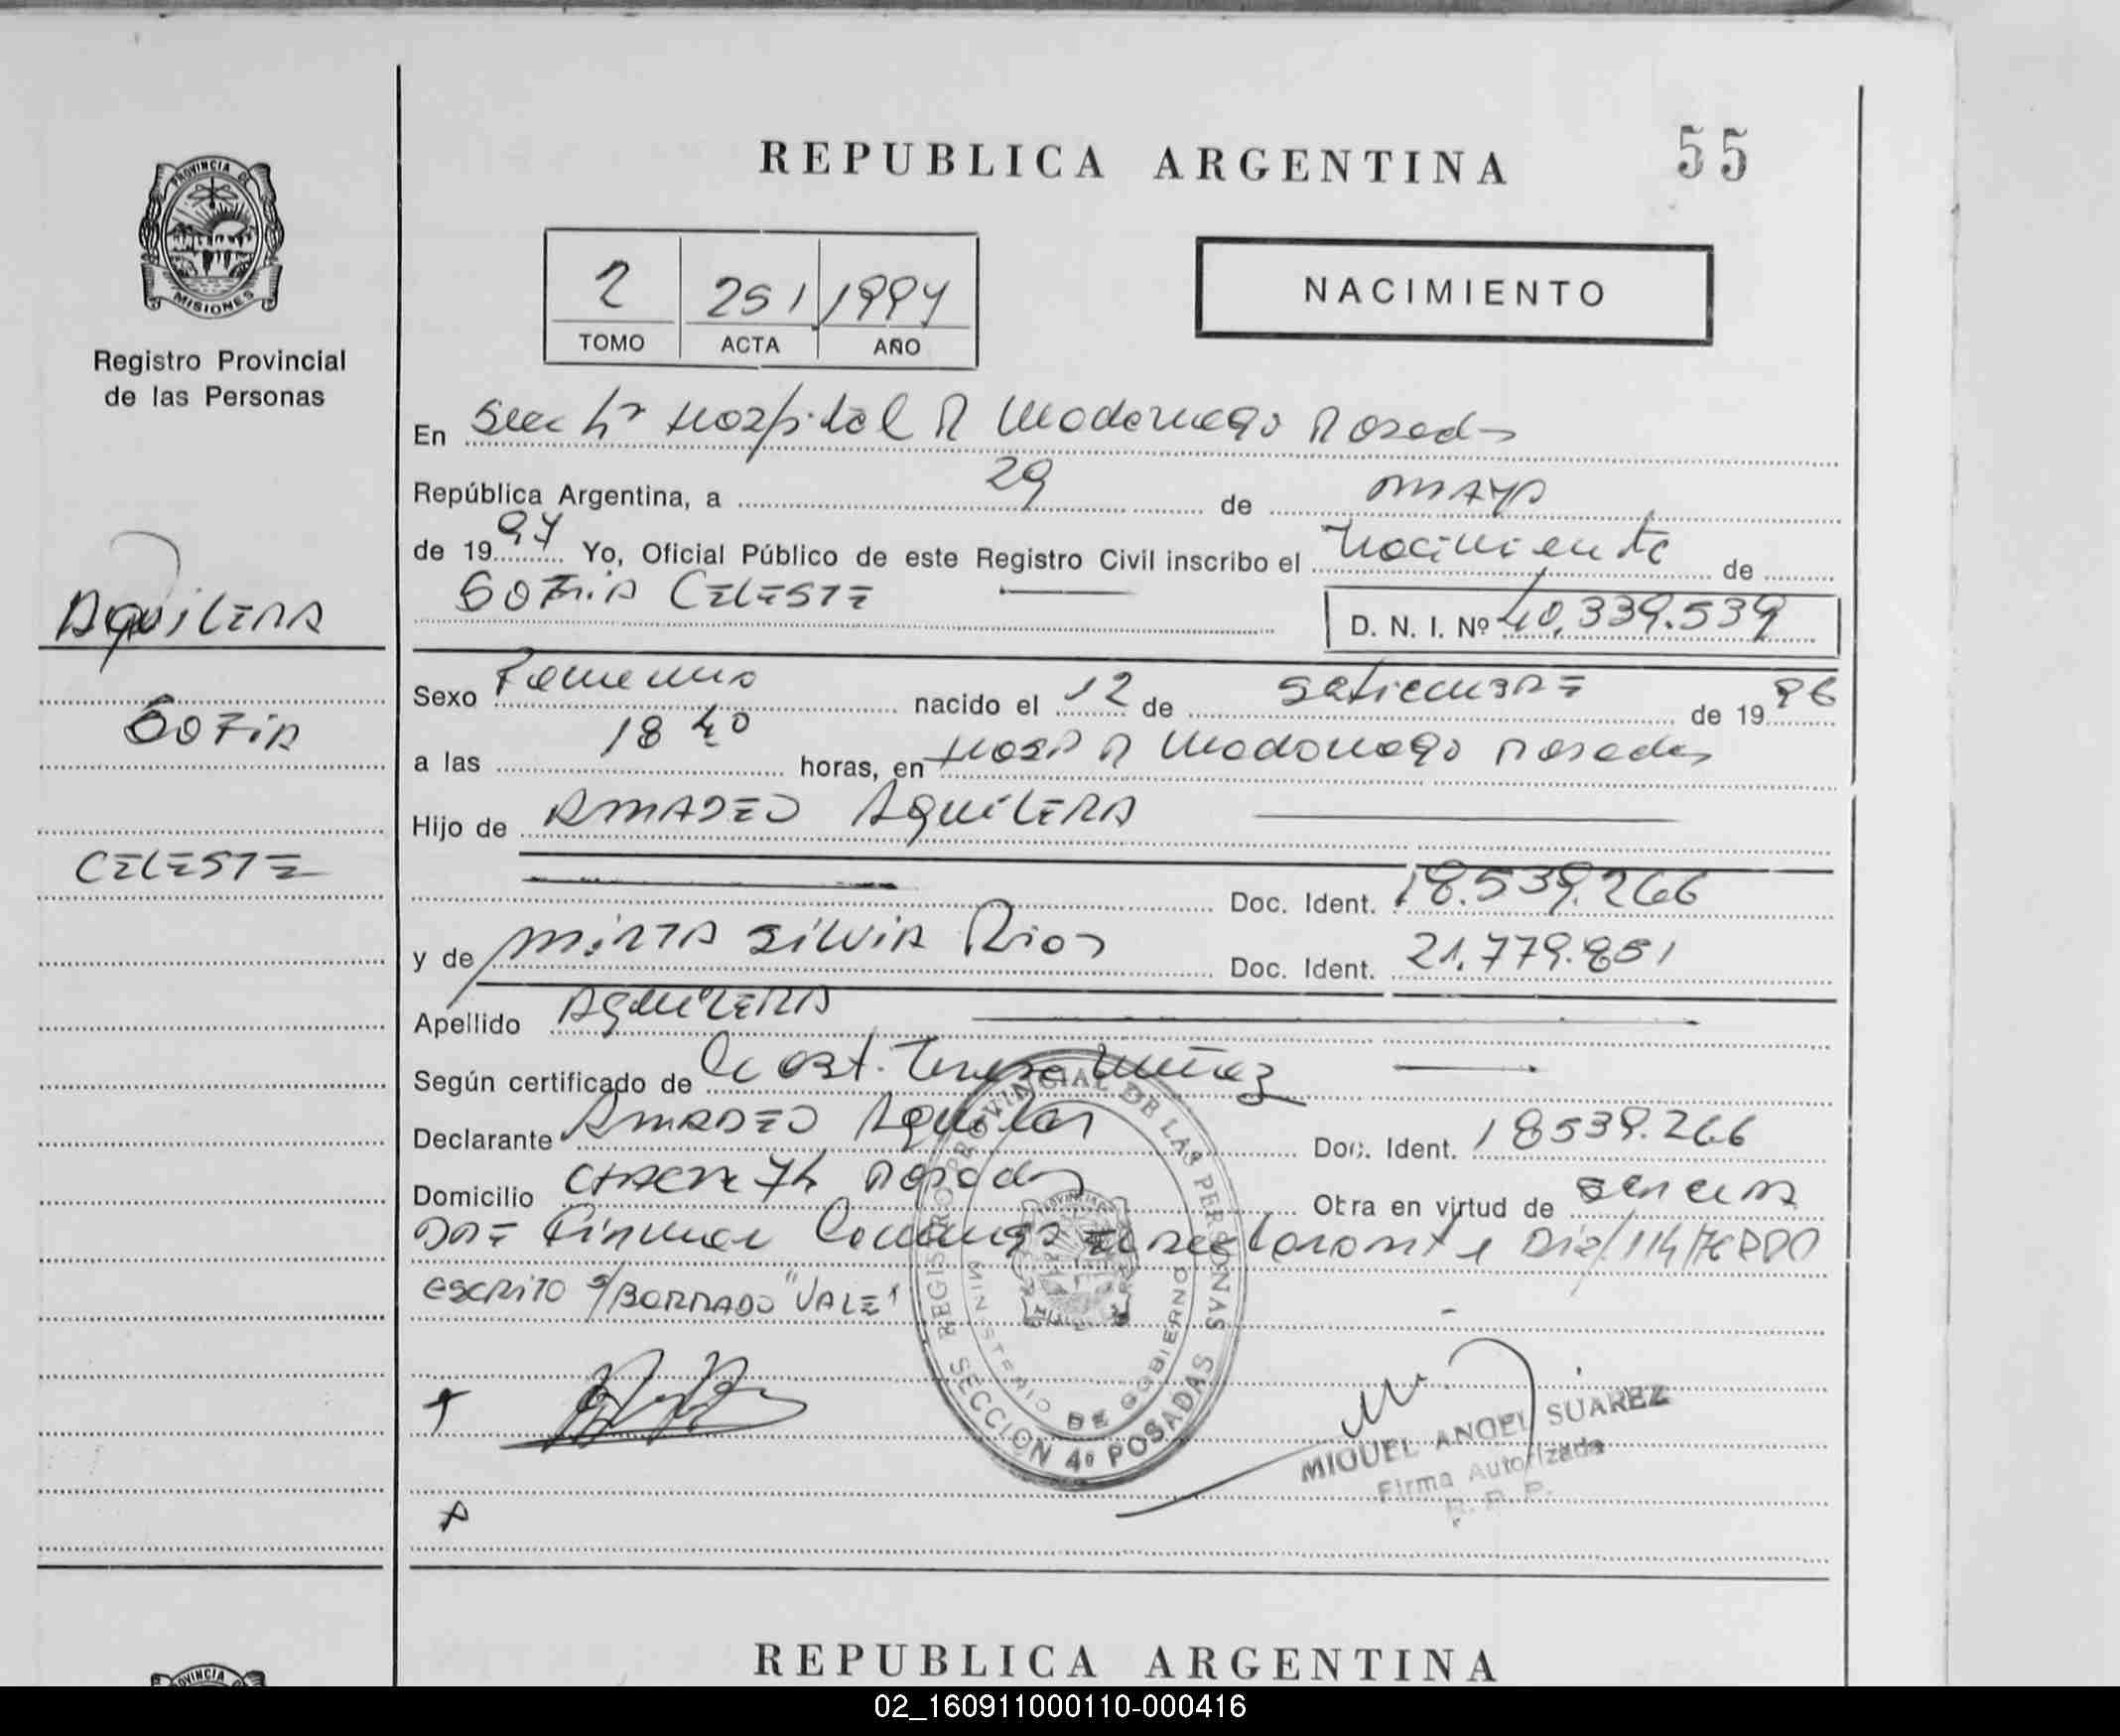 REPUBLICA ARGENTINA
55
PROVINCIA DE
MISIONES
Registro Provincial
de las Personas
2 251 1994
TOMO ACTA AÑO
NACIMIENTO
En Secc 4ª Hospital R Madariaga Posadas
República Argentina, a 29 de mayo
de 1994 Yo, Oficial Público de este Registro Civil inscribo el Nacimiento de
SOFIA CELESTE
D. N. I. Nº 40.339.539
AguiLERA
SOFIA
CELESTE
Sexo Femenino nacido el 12 de Setiembre de 19
a las 18 40 horas, en Hosp R Madariaga Posadas
Hijo de AMADEO AguiLERA
Doc. Ident. 18.539.266
y de MIRTA SILVIA Rios Doc. Ident. 21.779.851
Apellido AguiLERA
Según certificado de Obst. Teresa Muñoz
Declarante AMADEO Aguilera Doc. Ident. 18539.266
Domicilio CHACRA 74 Posadas Otra en virtud de
Firman Conmigo El declarante Dis/114/76 RPP
ESCRITO S/BORRADO "VALE"
REGISTRO PROVINCIAL DE LAS PERSONAS
MINISTERIO DE GOBIERNO
SECCION 4ª POSADAS
MIGUEL ANGEL SUAREZ
Firma Autorizada
R. P. P.
REPUBLICA ARGENTINA
PROVINCIA
02_160911000110-000416